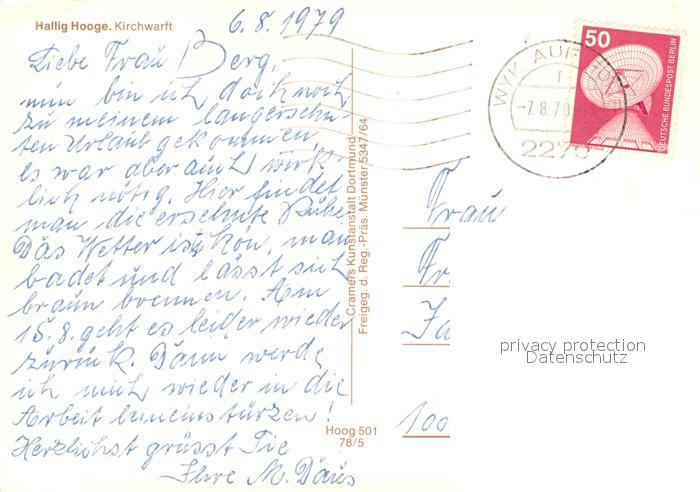 Hallig Hooge. Kirchwarft
6.8.1979
Liebe Frau Berg,
nun bin ich doch noch
zu meinem langersehn-
ten Urlaub gekommen,
es war aber auch wirk-
lich nötig. Hier findet
man die ersehnte Ruhe.
Das Wetter ist schön, man
badet und lässt sich
braun brennen. Am
15.8. geht es leider wieder
zurück. Dann werde
ich mich wieder in die
Arbeit hineinstürzen!
Herzlichst grüsst Sie
Ihre M. Däus
Cramers Kunstanstalt Dortmund
Freigeg. d. Reg.-Präs. Münster 5347/64
Hoog 501
78/5
WYK AUF
f
-7.8.79
2270
50
DEUTSCHE BUNDESPOST BERLIN
Frau
Fr.
100
privacy protection
Datenschutz